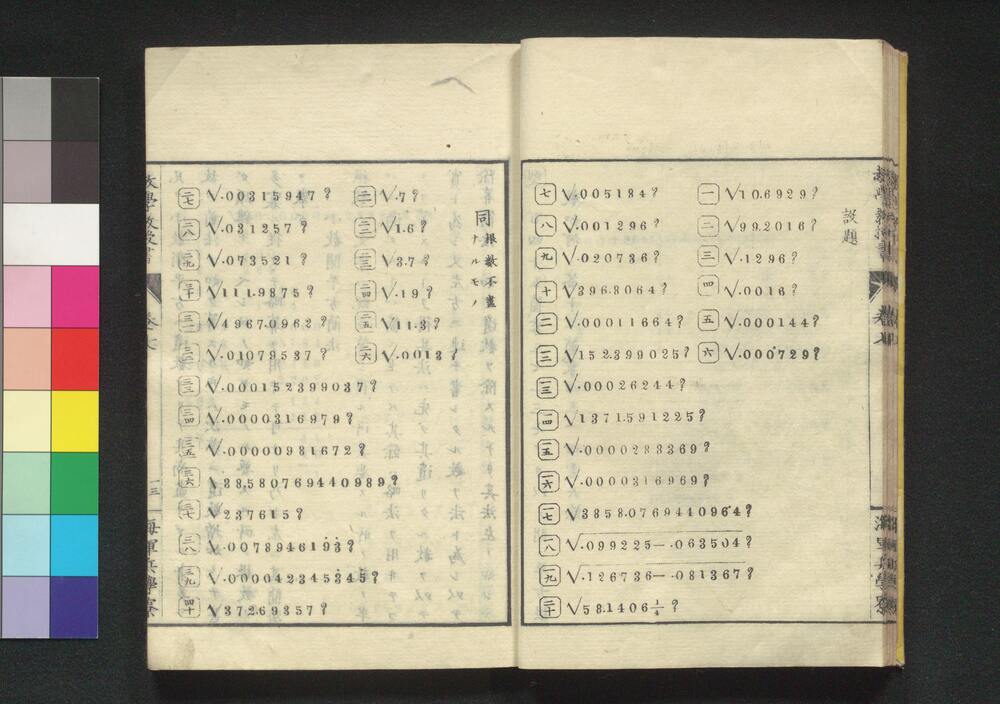 設題
一 √10.6929?
二 √99.2016?
三 √.1296?
四 √.0016?
五 √.000144?
六 √.000729?
七 √.005184?
八 √.001296?
九 √.020736?
十 √396.8064?
二 √.00011664?
三 √152399025?
一三 √.00026244?
一四 √1371.591225?
一五 √.0000283369?
一六 √.0000316969?
一七 √3858.0769440964?
一八 √.099225—.063504?
一九 √.126736—.081367?
二十 √58.1406¼?
同 根数不盡ナルモノ
二一 √.7?
二二 √1.6?
二三 √3.7?
二四 √.19?
二五 √11.3?
二六 √.0013?
二七 √.00315947?
二八 √.031257?
二九 √.073521?
三十 √111.9875?
三一 √4967.0962?
三二 √.01079537?
三三 √.000152399037?
三四 √.0000316979?
三五 √.00000981672?
三六 √38.580769440989?
三七 √237615?
三八 √.007894619̇3̇?
三九 √.000042345̇3̇45̇?
四十 √372.69357?
数學教授書
海軍兵學寮